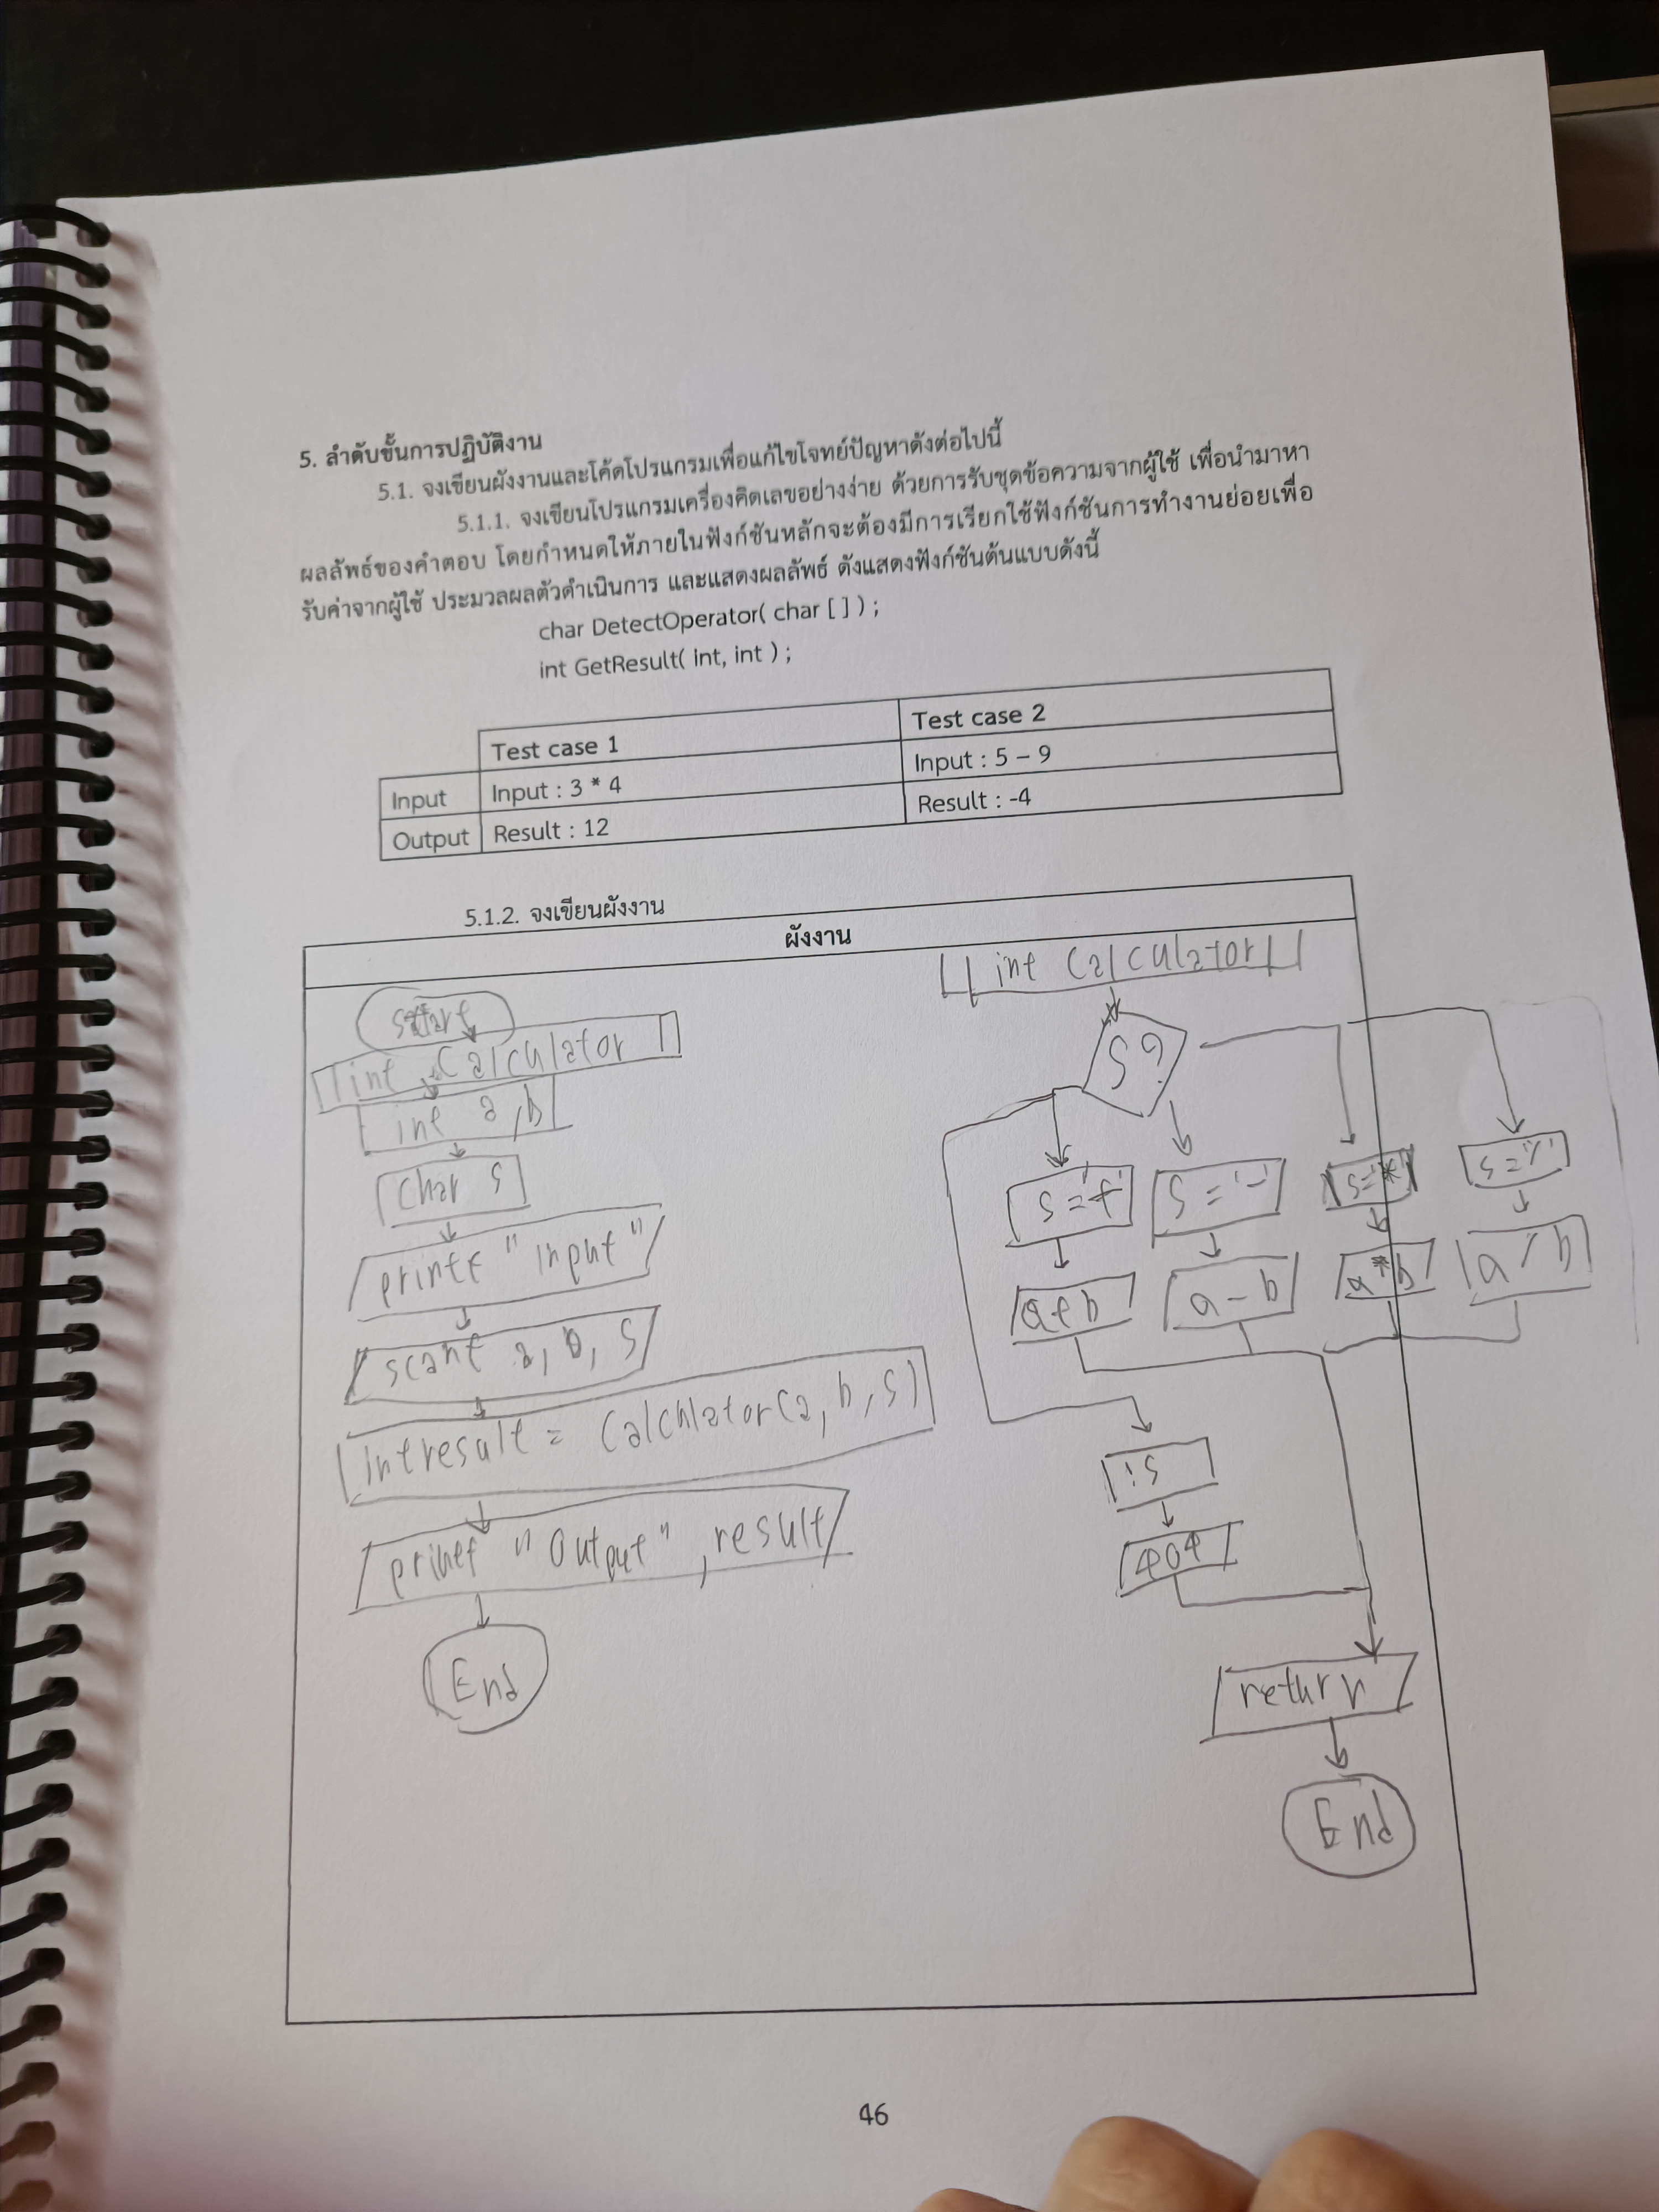 5. ลำดับขั้นการปฏิบัติงาน
5.1. จงเขียนผังงานและโค้ดโปรแกรมเพื่อแก้ไขโจทย์ปัญหาดังต่อไปนี้
5.1.1. จงเขียนโปรแกรมเครื่องคิดเลขอย่างง่าย ด้วยการรับชุดข้อความจากผู้ใช้ เพื่อนำมาหา
ผลลัพธ์ของคำตอบ โดยกำหนดให้ภายในฟังก์ชันหลักจะต้องมีการเรียกใช้ฟังก์ชันการทำงานย่อยเพื่อ
รับค่าจากผู้ใช้ ประมวลผลตัวดำเนินการ และแสดงผลลัพธ์ ดังแสดงฟังก์ชันต้นแบบดังนี้
char DetectOperator( char [ ] ) ;
int GetResult( int, int ) ;
Test case 1 Test case 2
Input Input : 3 * 4 Input : 5 – 9
Output Result : 12 Result : -4
5.1.2. จงเขียนผังงาน
ผังงาน
start
int Calculator
int a, b
char s
printf "Input"
scanf a, b, s
int result = Calculator(a, b, s)
printf "Output", result
End
int Calculator
S?
s = '+' s = '-' s = '*' s = '/'
a+b a - b a*b a / b
!s
404
return
End
46